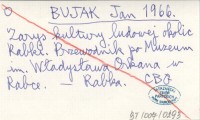 O BUJAK Jan 1966.
Zarys kultury ludowej okolic
Rabki. Przewodnik po Muzeum
im. Władysława Orkana w
Rabce. — Rabka. CBO